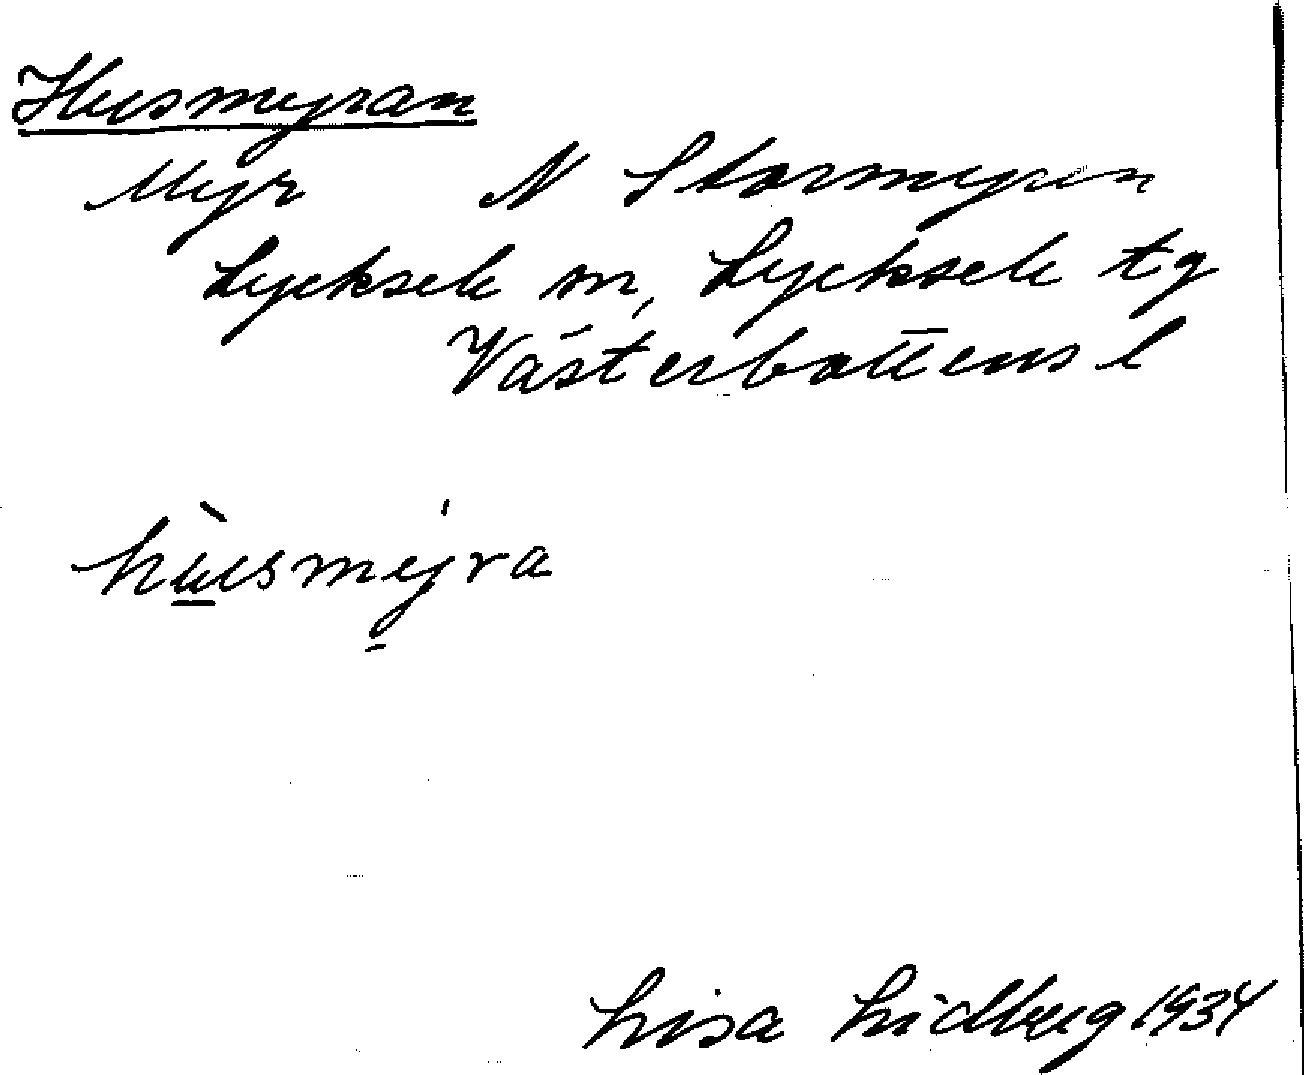 Husmyran
Myr N Stormyren
Lycksele sn, Lycksele tg
Västerbottens l
hùsmýra
Lisa Lidberg 1934